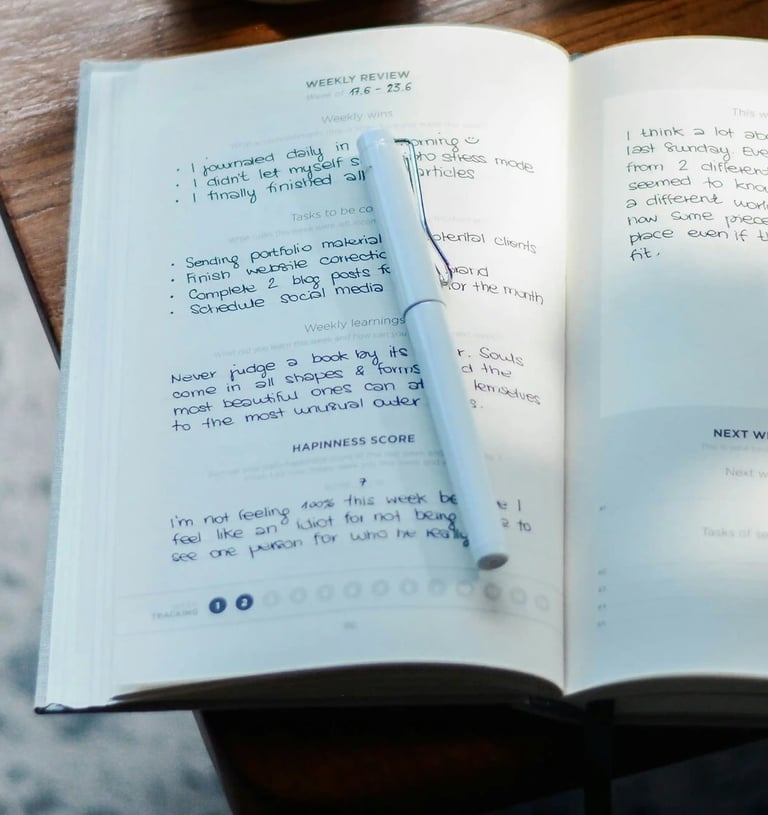 WEEKLY REVIEW
Week of 17.6 - 23.6
Weekly wins
• I journaled daily in orning ☺
• I didn't let myself s to stress mode
• I finally finished all articles
Tasks to be co
• Sending portfolio material otential clients
• Finish website correctio
• Complete 2 blog posts f brand
• Schedule social media for the month
Weekly learnings
Never judge a book by its r. Souls
come in all shapes & forms d the
most beautiful ones can at temselves
to the most unusual outer s.
HAPINNESS SCORE
7
I'm not feeling 100% this week be e I
feel like an idiot for not being e to
see one person for who he really
TRACKING 1 2
This w
I think a lot abo
last Sunday. Eve
from 2 different
seemed to kno
a different worl
how some piece
place even if t
fit.
NEXT WE
Next w
Tasks of se